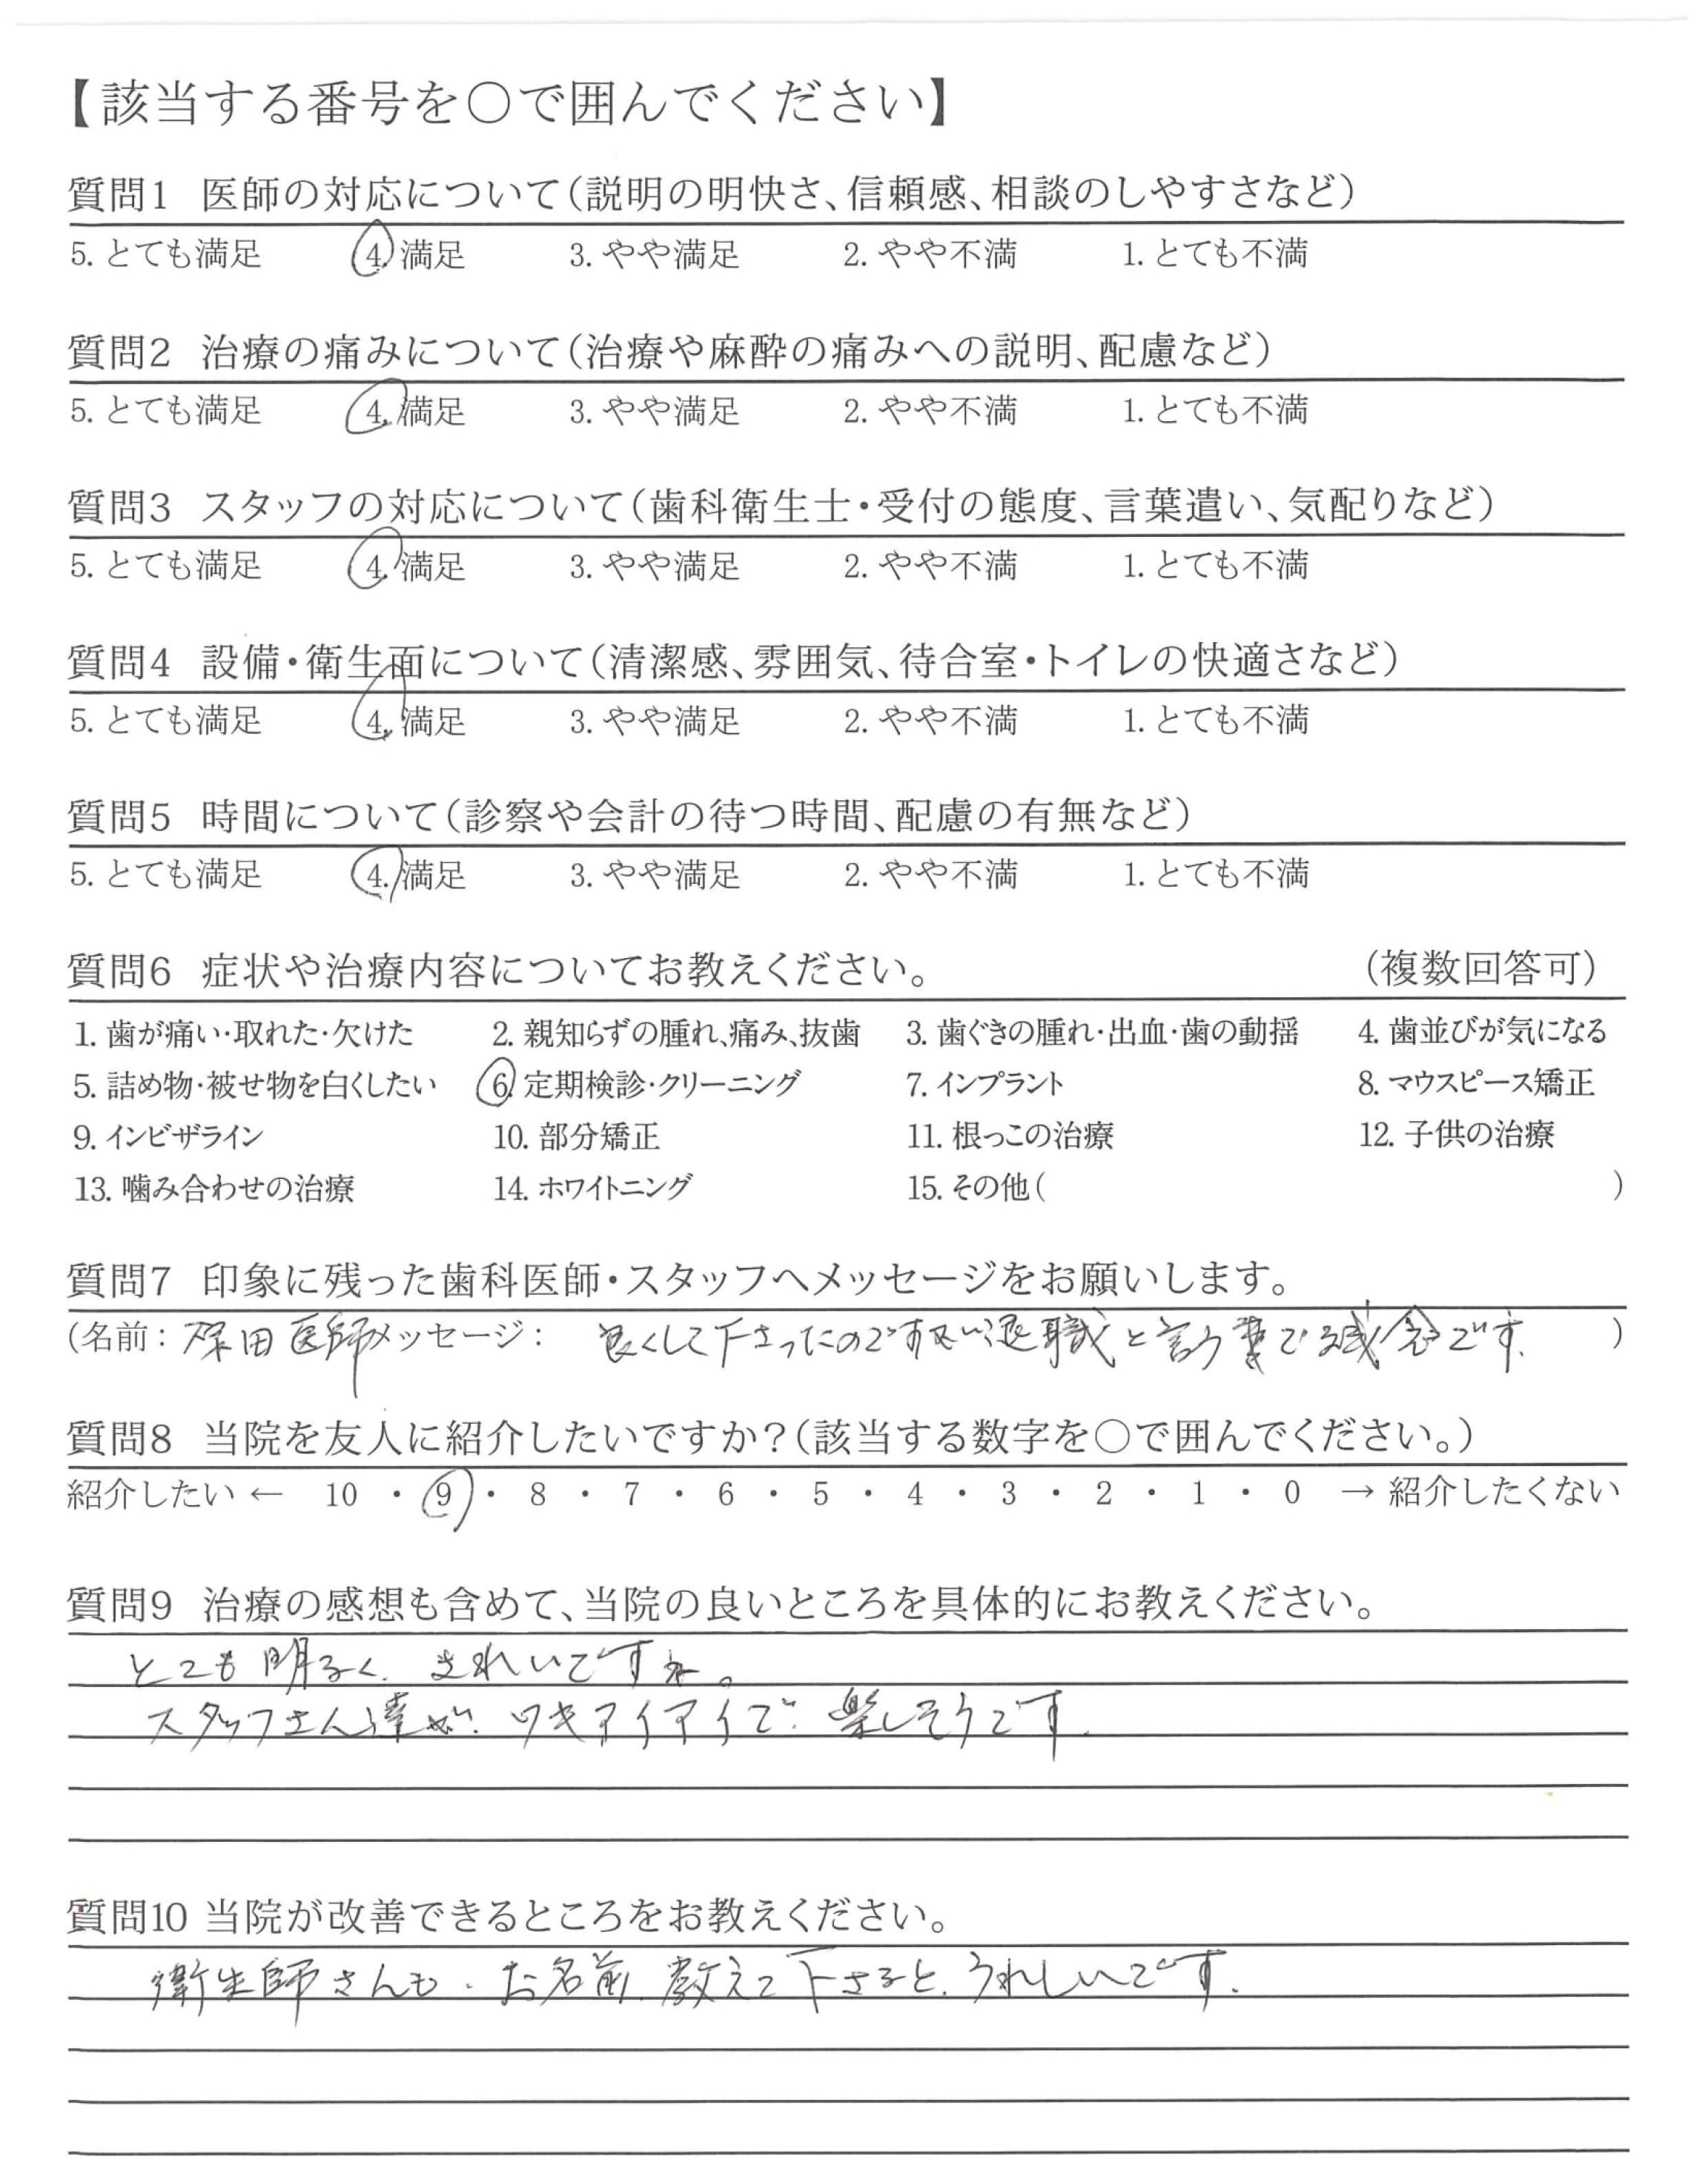 【該当する番号を○で囲んでください】
質問1 医師の対応について(説明の明快さ、信頼感、相談のしやすさなど)
5. とても満足 4. 満足 3. やや満足 2. やや不満 1. とても不満
質問2 治療の痛みについて(治療や麻酔の痛みへの説明、配慮など)
5. とても満足 4. 満足 3. やや満足 2. やや不満 1. とても不満
質問3 スタッフの対応について(歯科衛生士・受付の態度、言葉遣い、気配りなど)
5. とても満足 4. 満足 3. やや満足 2. やや不満 1. とても不満
質問4 設備・衛生面について(清潔感、雰囲気、待合室・トイレの快適さなど)
5. とても満足 4. 満足 3. やや満足 2. やや不満 1. とても不満
質問5 時間について(診察や会計の待つ時間、配慮の有無など)
5. とても満足 4. 満足 3. やや満足 2. やや不満 1. とても不満
質問6 症状や治療内容についてお教えください。 (複数回答可)
1. 歯が痛い・取れた・欠けた 2. 親知らずの腫れ、痛み、抜歯 3. 歯ぐきの腫れ・出血・歯の動揺 4. 歯並びが気になる
5. 詰め物・被せ物を白くしたい 6. 定期検診・クリーニング 7. インプラント 8. マウスピース矯正
9. インビザライン 10. 部分矯正 11. 根っこの治療 12. 子供の治療
13. 噛み合わせの治療 14. ホワイトニング 15. その他( )
質問7 印象に残った歯科医師・スタッフへメッセージをお願いします。
(名前: 田医師 メッセージ: 良くして下さったのですが、退職と言う事で残念です. )
質問8 当院を友人に紹介したいですか?(該当する数字を○で囲んでください。)
紹介したい ← 10 ・ 9 ・ 8 ・ 7 ・ 6 ・ 5 ・ 4 ・ 3 ・ 2 ・ 1 ・ 0 → 紹介したくない
質問9 治療の感想も含めて、当院の良いところを具体的にお教えください。
とても明るく、きれいですね。
スタッフさん達が、ワキアイアイで、楽しそうです.
質問10 当院が改善できるところをお教えください。
衛生師さんも、お名前、教えて下さると、うれしいです.